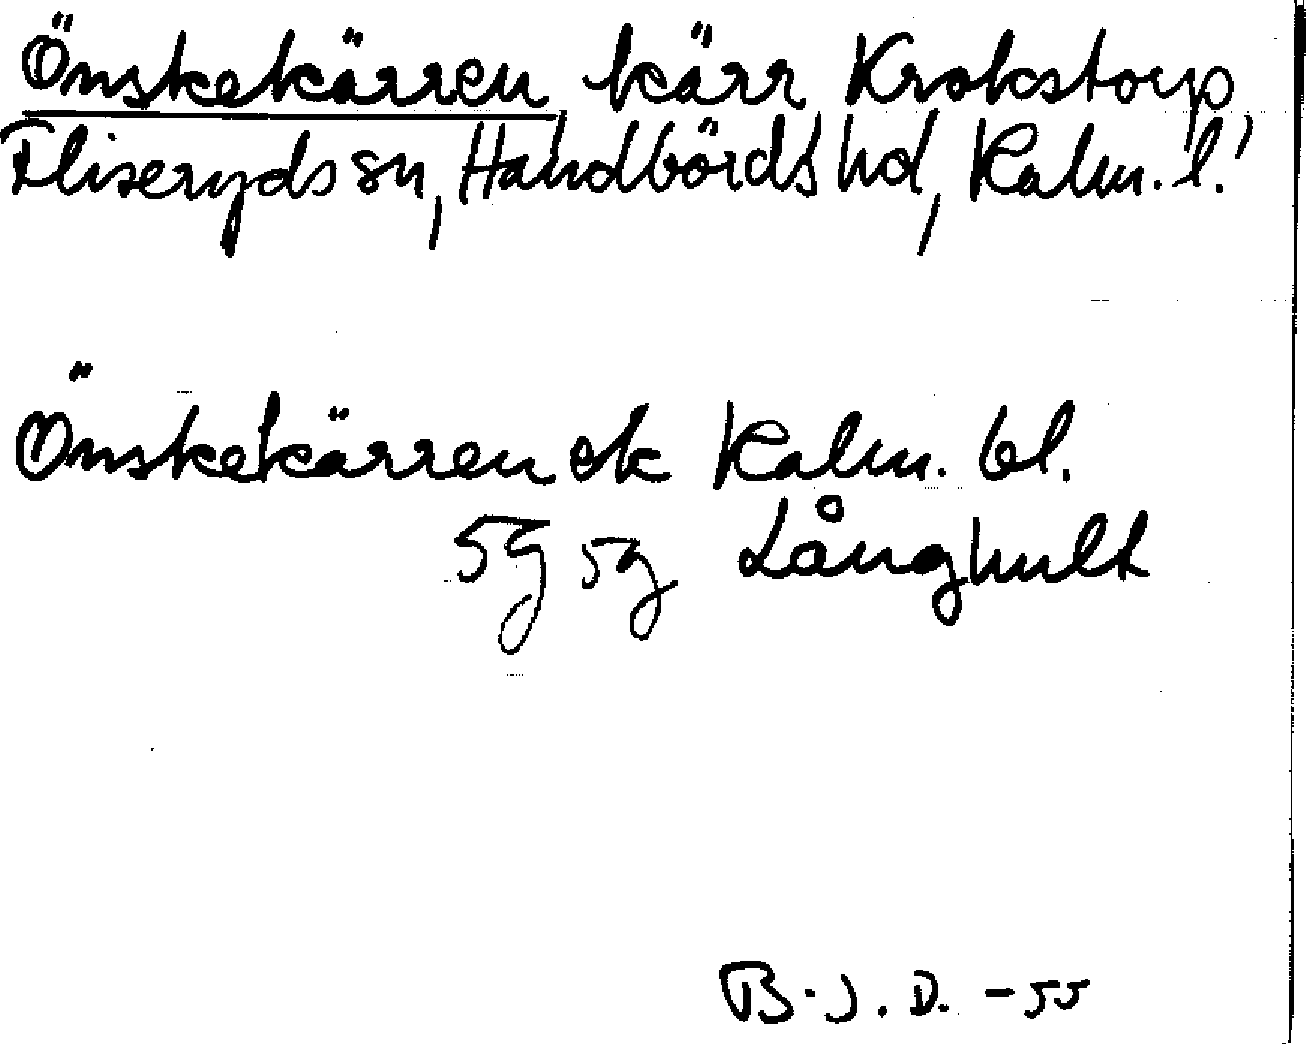 Önskekärren kärr Krokstorp,
Fliseryds sn, Handbörds hd, Kalm. l.
Önskekärren ek Kalm. bl.
5g 5g Långhult
B.J.D. -55